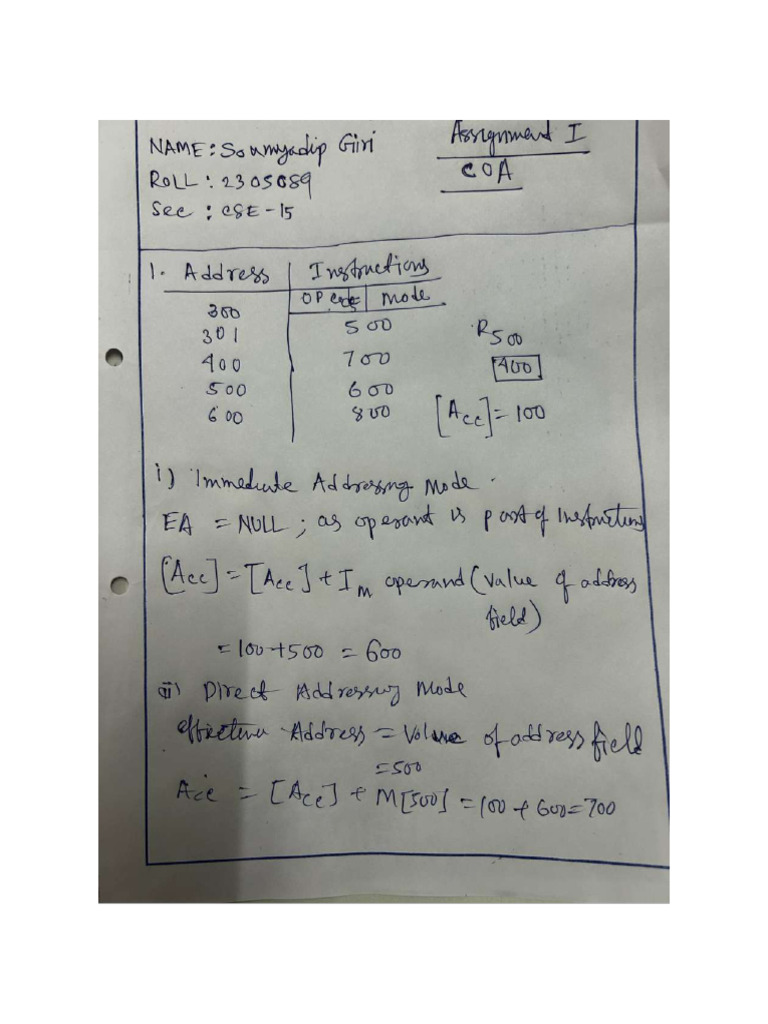 NAME: Soumyadip Giri Assignment I
ROLL: 2305089 COA
Sec : CSE-15
1. Address Instructions
OP Code Mode
300
301 500 R500
400 700 400
500 600
600 800 [Acc] = 100
i) Immediate Addressing Mode.
EA = NULL ; as operant is part of Instructions
[Acc] = [Acc] + Im operand (value of address
field)
= 100+500 = 600
ii) Direct Addressing Mode
effective Address = Value of address field
= 500
Acc = [Acc] + M[500] = 100 + 600 = 700